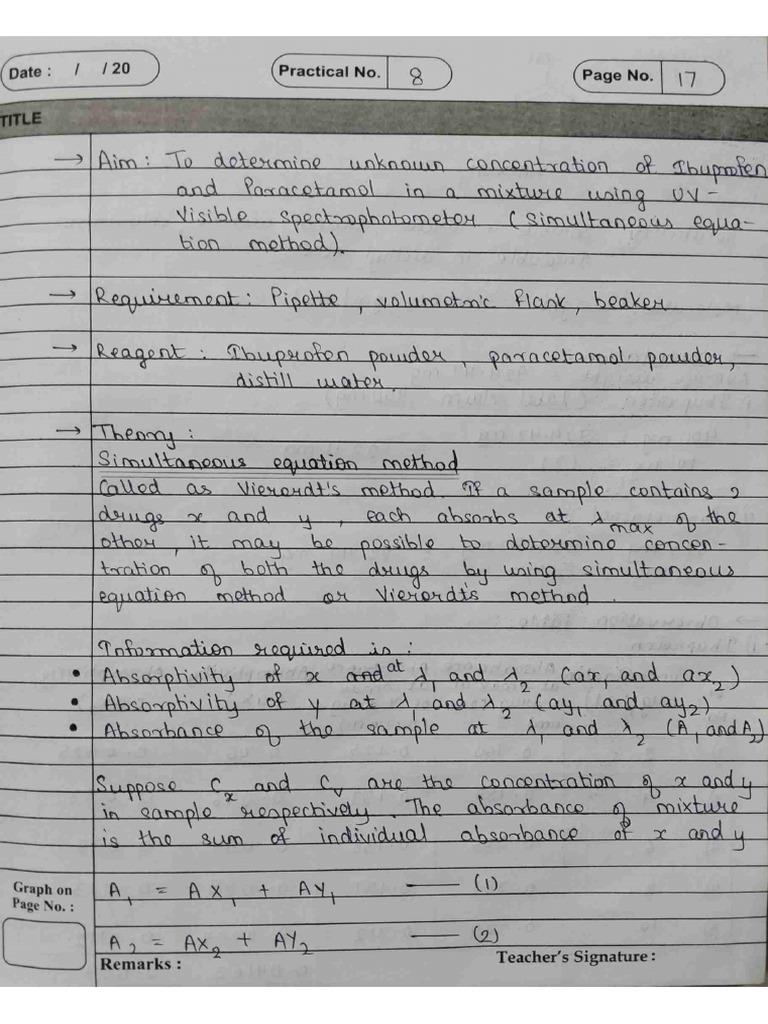 Date : / / 20
Practical No. 8
Page No. 17
TITLE
→ Aim : To determine unknown concentration of Ibuprofen
and Paracetamol in a mixture using UV-
Visible spectrophotometer (simultaneous equa-
tion method).
→ Requirement : Pipette, volumetric flask, beaker
→ Reagent : Ibuprofen powder, paracetamol powder,
distill water.
→ Theory :
Simultaneous equation method
Called as Vierordt's method. If a sample contains 2
drugs x and y, each absorbs at λmax of the
other, it may be possible to determine concen-
tration of both the drugs by using simultaneous
equation method or Vierordt's method.
Information required is :
• Absorptivity of x at λ₁ and λ₂ (ax₁ and ax₂)
• Absorptivity of y at λ₁ and λ₂ (ay₁ and ay₂)
• Absorbance of the sample at λ₁ and λ₂ (A₁ and A₂)
Suppose Cx and Cy are the concentration of x and y
in sample respectively. The absorbance of mixture
is the sum of individual absorbance of x and y
A₁ = AX₁ + AY₁ —— (1)
A₂ = AX₂ + AY₂ —— (2)
Graph on
Page No. :
Remarks :
Teacher's Signature :